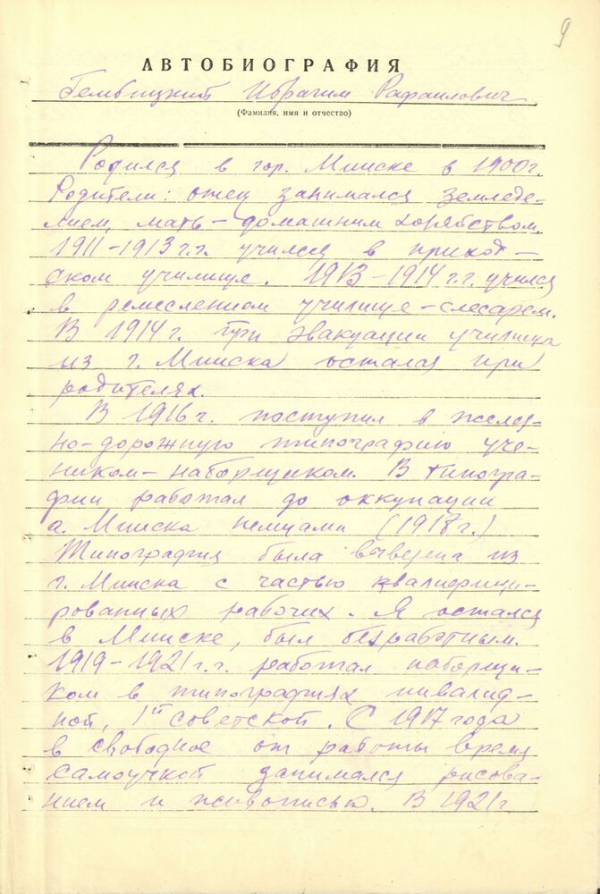 9
АВТОБИОГРАФИЯ
Гембицкий Ибрагим Рафаилович
(Фамилия, имя и отчество)
Родился в гор. Минске в 1900г.
Родители: отец занимался земледе-
лием, мать – домашним хозяйством.
1911-1913 г.г. учился в приход-
ском училище. 1913-1914 г.г. учился
в ремесленном училище – слесарем.
В 1914 г. при эвакуации училища
из г. Минска остался при
родителях.
В 1916 г. поступил в желез-
но-дорожную типографию уче-
ником-наборщиком. В типогра-
фии работал до оккупации
г. Минска немцами (1918 г.)
Типография была вывезена из
г. Минска с частью квалифици-
рованных рабочих. Я остался
в Минске, был безработным.
1919-1921 г.г. работал наборщи-
ком в типографиях инвалид-
ной, 1й советской. С 1917 года
в свободное от работы время
самоучкой занимался рисова-
нием и живописью. В 1921 г